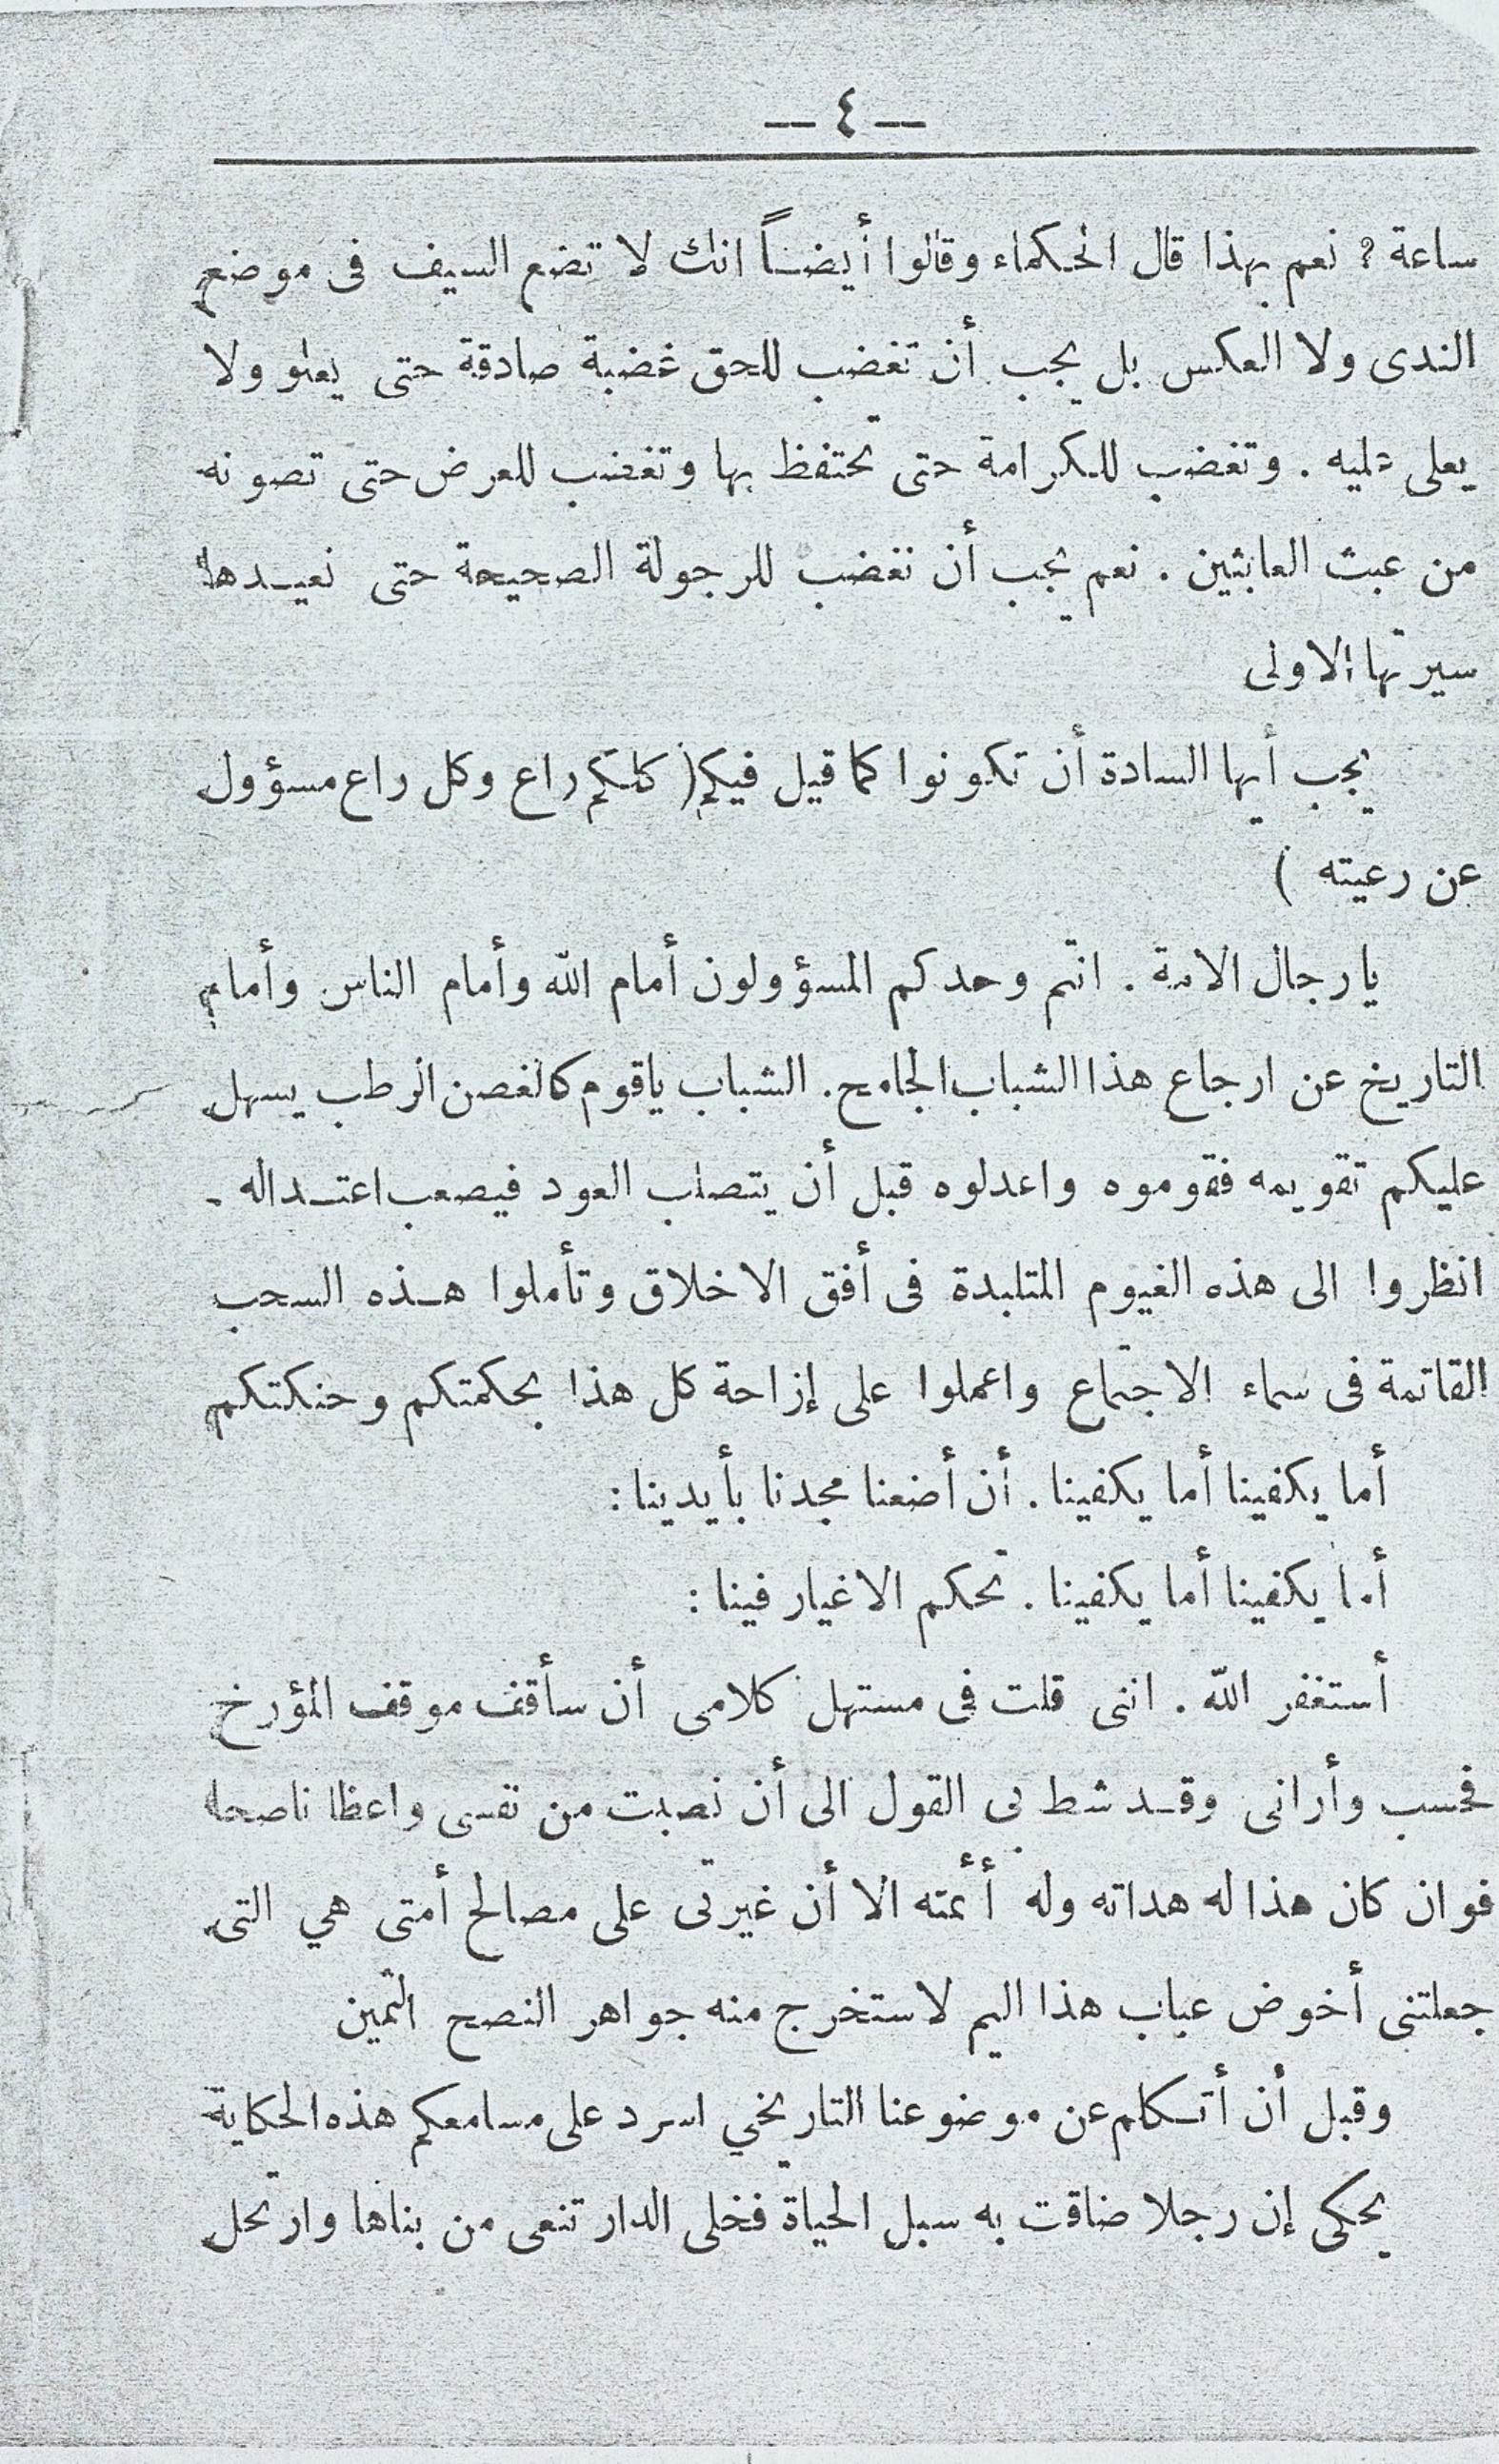 — ٤ —
ساعة ? نعم بهذا قال الحكماء وقالوا أيضاً انك لا تضع السيف فى موضع
الندى ولا العكس بل يجب أن تغضب للحق غضبة صادقة حتى يعلو ولا
يعلى عليه . وتغضب للكرامة حتى تحتفظ بها وتغضب للعرض حتى تصونه
من عبث العابثين . نعم يجب أن نغضب للرجولة الصحيحة حتى نعيدها
سيرتها الاولى
يجب أيها السادة أن تكونوا كما قيل فيكم ( كلكم راع وكل راع مسؤول
عن رعيته )
يارجال الامة . انتم وحدكم المسؤولون أمام الله وأمام الناس وأمام
التاريخ عن ارجاع هذا الشباب الجامح . الشباب ياقوم كالغصن الرطب يسهل
عليكم تقويمه فقوموه واعدلوه قبل أن يتصلب العود فيصعب اعتداله .
انظروا الى هذه الغيوم المتلبدة فى أفق الاخلاق وتأملوا هذه السحب
القاتمة فى سماء الاجتماع واعملوا على إزاحة كل هذا بحكمتكم وحنكتكم
أما يكفينا أما يكفينا . أن أضعنا مجدنا بأيدينا :
أما يكفينا أما يكفينا . تحكم الاغيار فينا :
أستغفر الله . اننى قلت فى مستهل كلامى أن سأقف موقف المؤرخ
فحسب وأرانى وقد شط بى القول الى أن نصبت من نفسى واعظا ناصحا
فوان كان هذا له هداته وله أئمته الا أن غيرتى على مصالح أمتى هي التى
جعلتنى أخوض عباب هذا اليم لاستخرج منه جواهر النصح الثمين
وقبل أن أتكلم عن موضوعنا التاريخي اسرد على مسامعكم هذه الحكاية
يحكى إن رجلا ضاقت به سبل الحياة فخلى الدار تنعى من بناها وارتحل